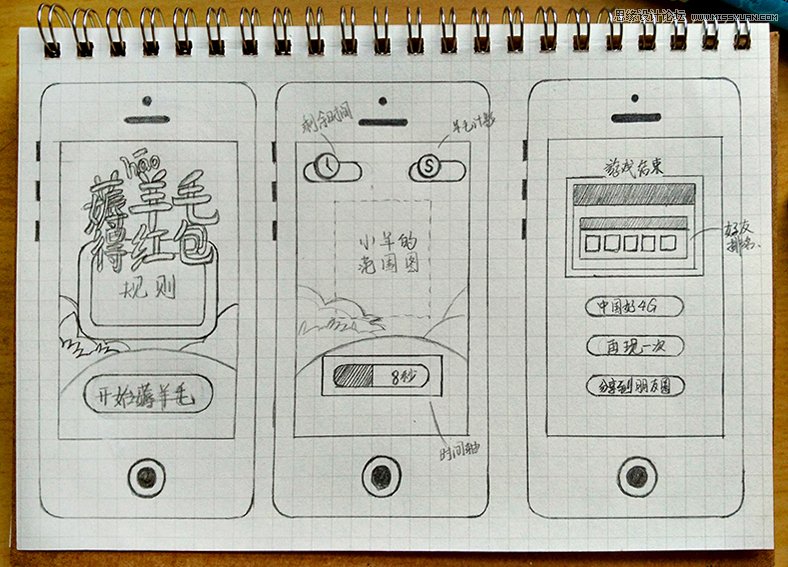 思缘设计论坛 WWW.MISSYUAN.COM
hāo
薅羊毛
得红包
规则
开始薅羊毛
剩余时间
羊毛计数
L
S
小羊的
范围图
8秒
时间轴
游戏结束
好友
排名
中国好4G
再现一次
分享到朋友圈